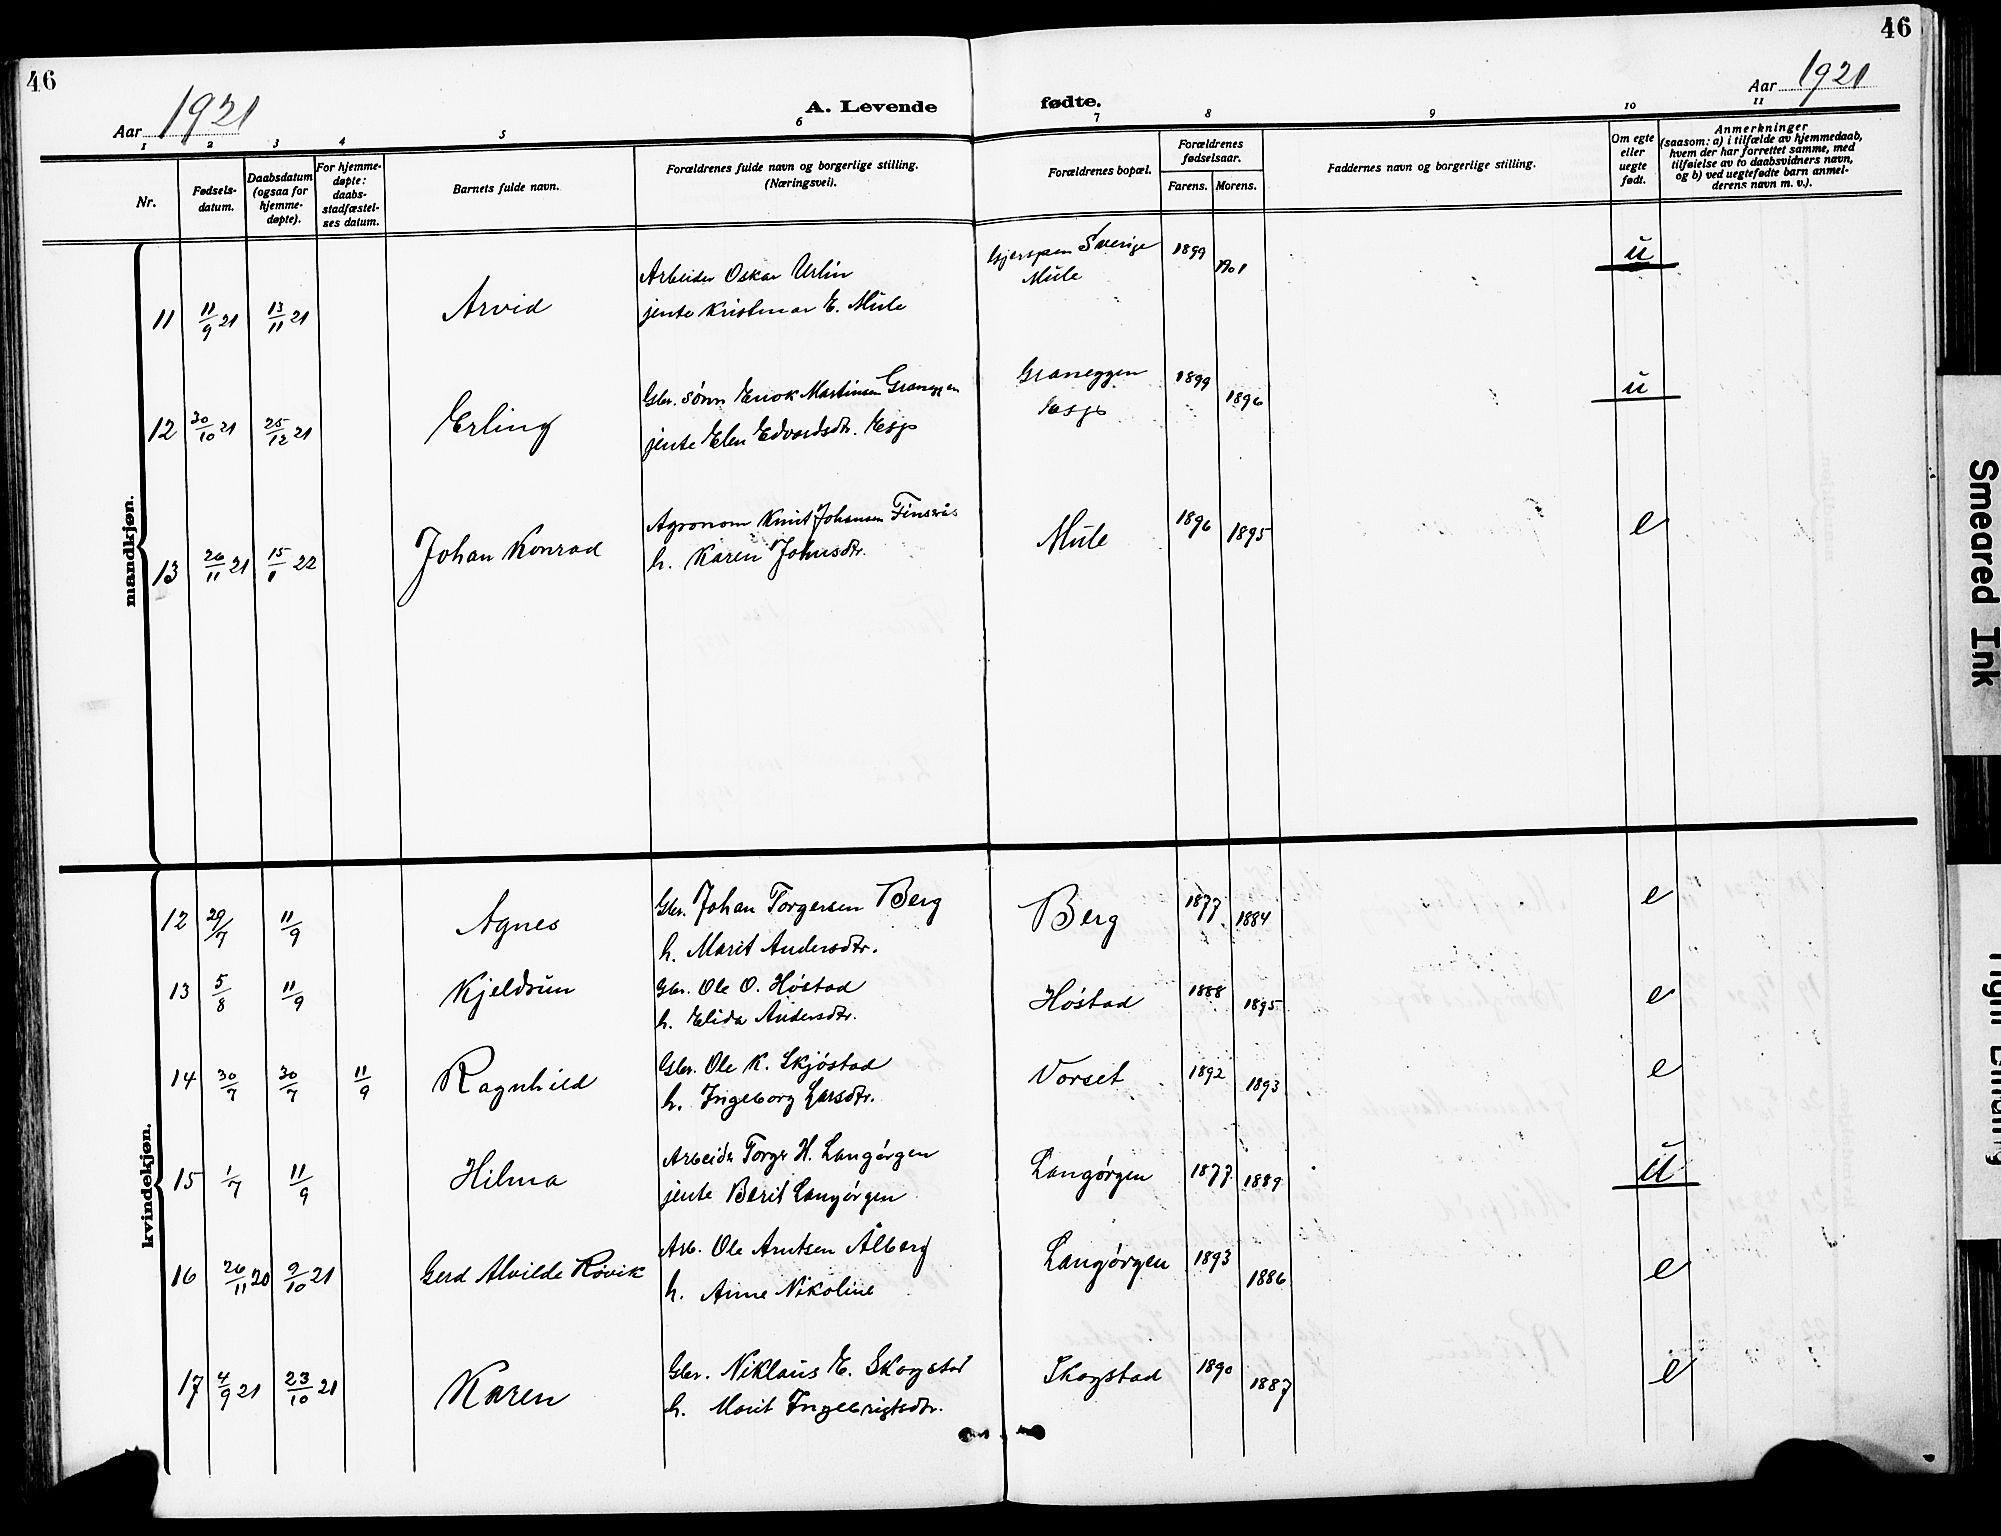 46
46
Aar 1921
A. Levende fødte.
Aar 1921
1 2 3 4 5 6 7 8 9 10 11
Nr.
Fødsels-
datum.
Daabsdatum
(ogsaa for
hjemme-
døpte).
For hjemme-
døpte:
daabs-
stadfæstel-
ses datum.
Barnets fulde navn.
Forældrenes fulde navn og borgerlige stilling.
(Næringsvei).
Forældrenes bopæl.
Forældrenes
fødselsaar.
Farens. Morens.
Faddernes navn og borgerlige stilling.
Om egte
eller
uegte
født.
Anmerkninger
(saasom: a) i tilfælde av hjemmedaab,
hvem der har forrettet samme, med
tilføielse av to daabsvidners navn,
og b) ved uegtefødte barn anmel-
derens navn m. v.).
mandkjøn.
11 11/9 21 13/11 21 Arvid
Arbeider Oskar Urlin
jente Kristmar E. Mule
Sverige
Mule
1899 1901 u
12 30/10 21 25/12 21 Erling
Gbr. sønn Enok Martinsen Graneggen
jente Elen Edvardsdtr. Esp
Graneggen
Esp
1899 1896 u
13 26/11 21 15/1 22 Johan Konrad
Agronom Knut Johansen Finserås
h. Karen Johnsdtr.
Mule
1896 1895 e
kvindekjøn.
12 29/7 11/9 Agnes
Gbr. Johan Torgersen Berg
h. Marit Andersdtr.
Berg
1877 1884 e
13 5/8 11/9 Kjeldrun
Gbr. Ole O. Høstad
h. Elida Andersdtr.
Høstad
1888 1895 e
14 30/7 30/7 11/9 Ragnhild
Gbr. Ole K. Skjøstad
h. Ingeborg Larsdtr.
Vorset
1892 1893 e
15 1/7 11/9 Hilma
Arbeider Torger H. Langørgen
jente Berit Langørgen
Langørgen
1877 1889 u
16 26/11 20 9/10 21 Gerd Alvilde Røvik
Arb. Ole Arntsen Ålberg
h. Anne Nikoline
Langørgen
1893 1886 e
17 4/9 21 23/10 21 Karen
Gbr. Niklaus E. Skogstad
h. Marit Ingebrigtsdtr.
Skogstad
1890 1887 e
Smeared Ink
Tight Binding